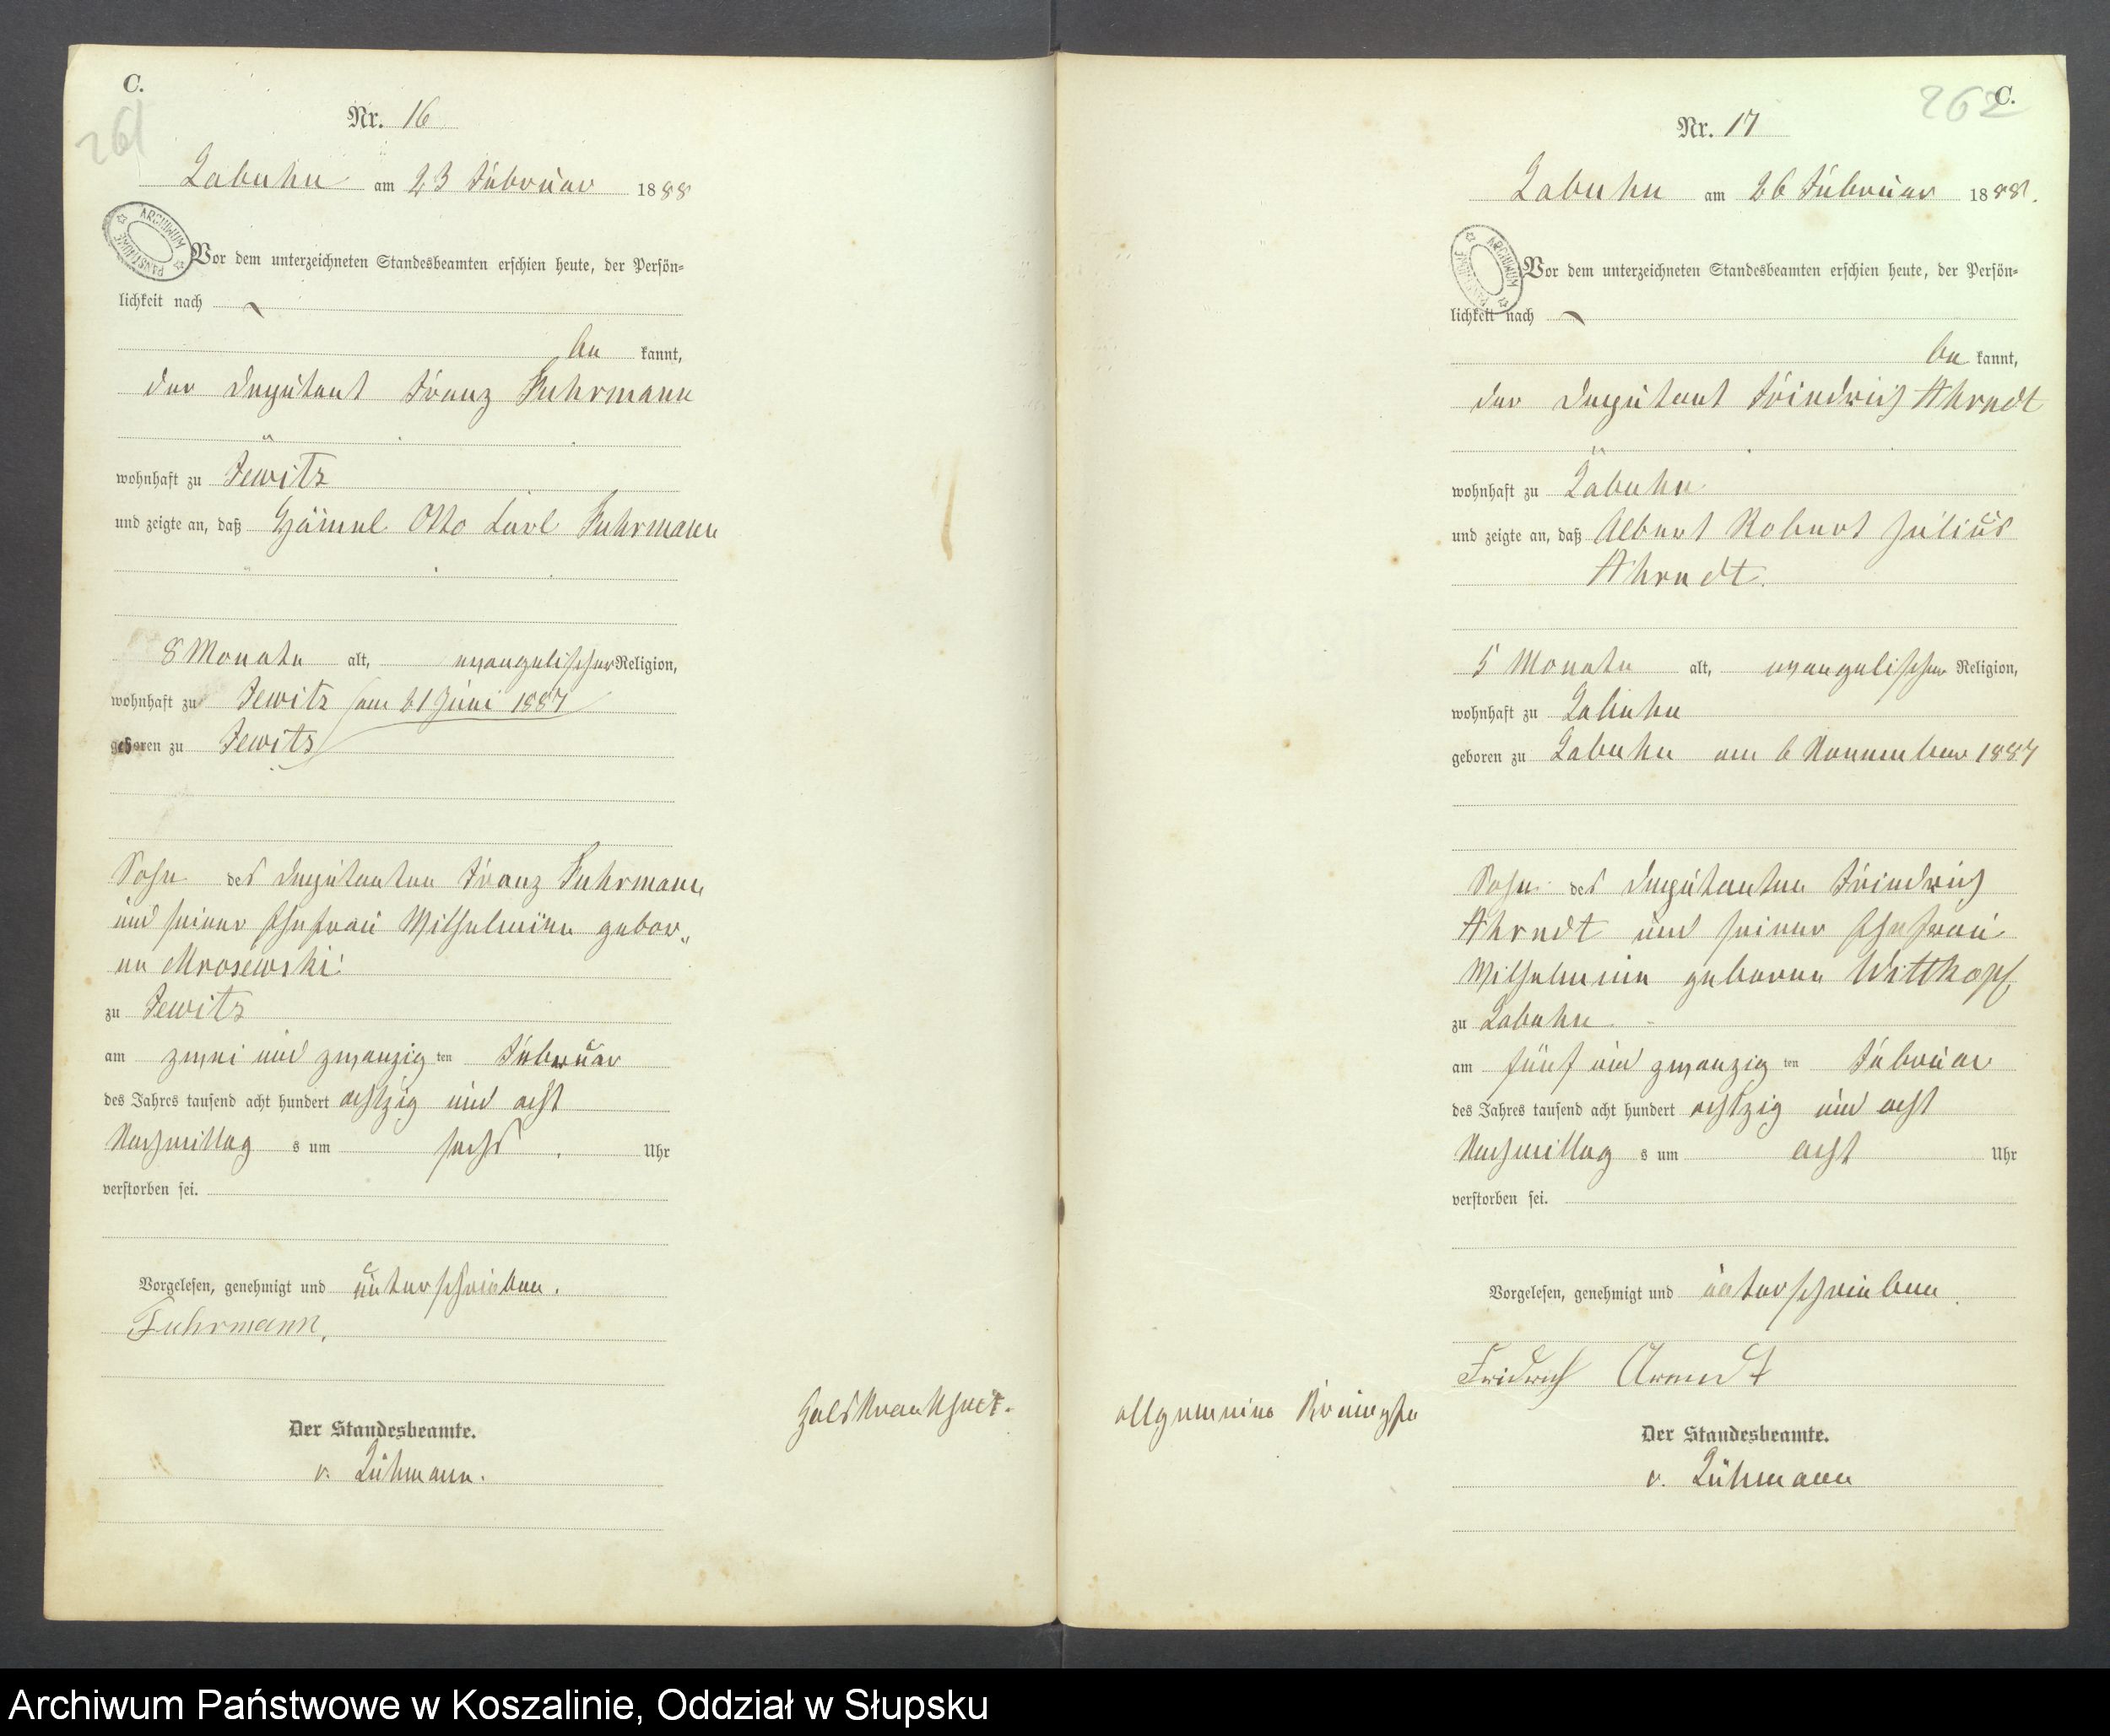 C.
261
Nr. 16
Labuhn am 23 Februar 1888
ARCHIWUM PAŃSTWOWE
Vor dem unterzeichneten Standesbeamten erschien heute, der Persön-
lichkeit nach
be kannt,
der Deputant Franz Fuhrmann
wohnhaft zu Jewitz
und zeigte an, daß Otto Carl Fuhrmann
8 Monate alt, evangelischer Religion,
wohnhaft zu Jewitz (am 21 Juni 1887
geboren zu Jewitz)
Sohn des Deputanten Franz Fuhrmann
und seiner Ehefrau Wilhelmine gebor„
ne Mrosewski
zu Jewitz
am zwei und zwanzig ten Februar
des Jahres tausend acht hundert achtzig und acht
Nachmittag s um sechs Uhr
verstorben sei.
Vorgelesen, genehmigt und unterschrieben.
Fuhrmann.
Der Standesbeamte.
v. Lühmann.
Halskrankheit.
C.
262
Nr. 17
Labuhn am 26 Februar 1888.
ARCHIWUM PAŃSTWOWE
Vor dem unterzeichneten Standesbeamten erschien heute, der Persön-
lichkeit nach
be kannt,
der Deputant Friedrich Ahrndt
wohnhaft zu Labuhn
und zeigte an, daß Albert Robert Julius
Ahrndt.
5 Monate alt, evangelischer Religion,
wohnhaft zu Labuhn
geboren zu Labuhn am 6 November 1887
Sohn des Deputanten Friedrich
Ahrndt und seiner Ehefrau
Wilhelmine geborne Wittkopf
zu Labuhn
am fünf und zwanzig ten Februar
des Jahres tausend acht hundert achtzig und acht
Nachmittag s um acht Uhr
verstorben sei.
Vorgelesen, genehmigt und unterschrieben
Fridrich Arendt
allgemeine Krämpfe
Der Standesbeamte.
v. Lühmann
Archiwum Państwowe w Koszalinie, Oddział w Słupsku